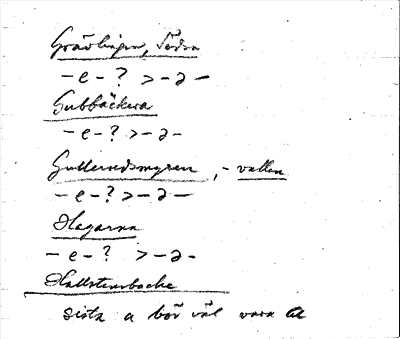 Grävlingen, Södra
– e – ? > – a –
Gubbäckra
– e – ? > – a –
Gullerudsmyren, – vallen
– e – ? > – a –
Hagarna
– e – ? > – a –
Hallstensbacke
sista a bör väl vara